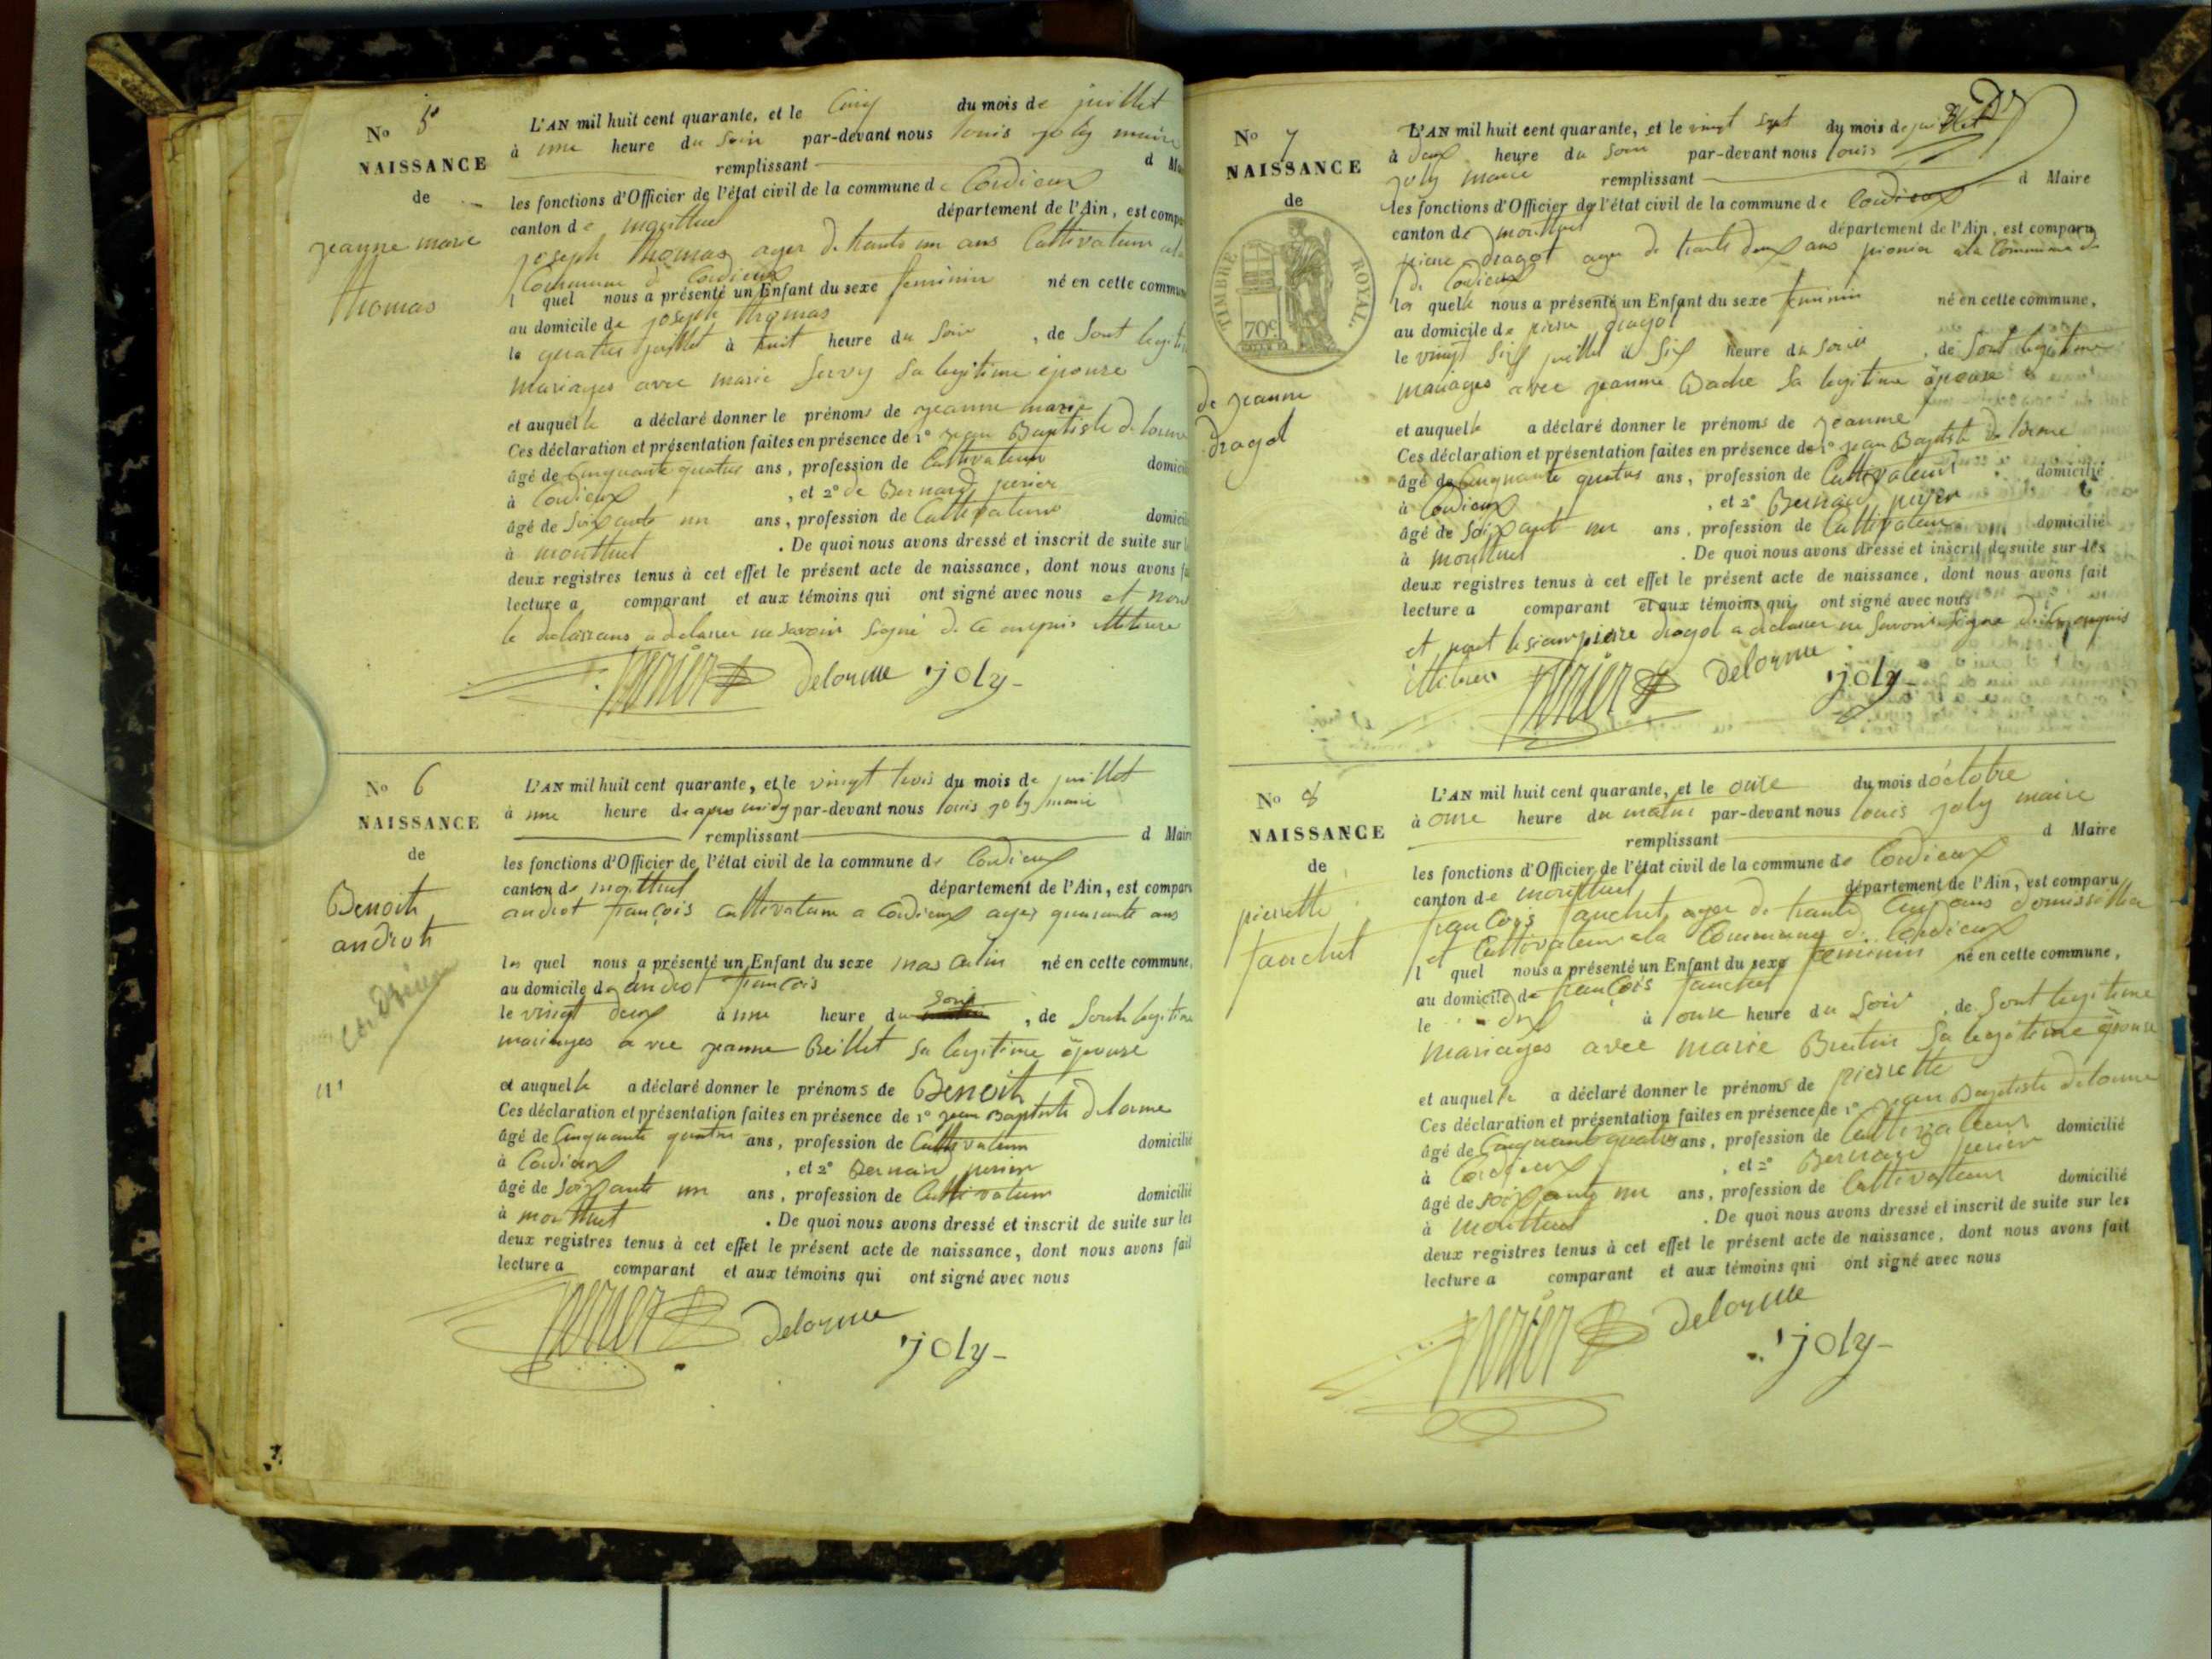 No 5
NAISSANCE
de
jeanne marie
thomas
L'AN mil huit cent quarante, et le Cinq du mois de juillet
à une heure du Soir par-devant nous louis joly maire
remplissant d
les fonctions d'Officier de l'état civil de la commune de Cordieux
canton de montluel département de l'Ain, est
joseph thomas ager de trante un ans Cultivateur
Commune de Cordieux
l quel nous a présenté un Enfant du sexe feminin né en cette
au domicile de joseph thomas
le quatre juillet à huit heure du Soir , de Sont
mariages avec marie Servy Sa legitime épouse
et auquelle a déclaré donner le prénoms de jeanne marie
Ces déclaration et présentation faites en présence de 1° jean Baptiste
âgé de Cinquante quatre ans, profession de Cultivateur
à Cordieux , et 2° de Bernard perier
âgé de Soixante un ans, profession de Cultivateur
à montluel . De quoi nous avons dressé et inscrit de suite sur
deux registres tenus à cet effet le présent acte de naissance, dont nous avons
lecture a comparant et aux témoins qui ont signé avec nous et non
le a declarer ne Savoir Signé de ce
perier Delorme joly
No 6
NAISSANCE
de
Benoit
androt
L'AN mil huit cent quarante, et le vingt trois du mois de juillet
à une heure d apres midy par-devant nous louis joly maire
remplissant d Maire
les fonctions d'Officier de l'état civil de la commune de Cordieux
canton de montluel département de l'Ain, est
androt françois Cultivateur a Cordieux ager quarante ans
les quel nous a présenté un Enfant du sexe mas Culin né en cette commune,
au domicile de androt françois
le vingt deux à une heure du soir , de Sont legitime
mariages avec jeanne Beillet Sa legitime épouse
et auquelle a déclaré donner le prénoms de Benoit
Ces déclaration et présentation faites en présence de 1° jean Baptiste delorme
âgé de Cinquante quatre ans, profession de Cultivateur domicilié
à Cordieux , et 2° Bernard perier
âgé de Soixante un ans, profession de Cultivateur domicilié
à montluel . De quoi nous avons dressé et inscrit de suite sur les
deux registres tenus à cet effet le présent acte de naissance, dont nous avons fait
lecture a comparant et aux témoins qui ont signé avec nous
perier Delorme joly
No 7
NAISSANCE
de
TIMBRE ROYAL.
70c
de jeanne
dragol
L'AN mil huit cent quarante, et le vingt Sept du mois de juillet
à deux heure du Soir par-devant nous louis
joly maire remplissant d Maire
les fonctions d'Officier de l'état civil de la commune de Cordieux
canton de montluel département de l'Ain, est comparu
piere dragol ager de trante deux ans a la Commune de
de Cordieux
les quelle nous a présenté un Enfant du sexe feminin né en cette commune,
au domicile de piere dragol
le vingt Six juillet à Six heure du Soir , de Sont legitime
mariages avec jeanne Sa legitime épouse
et auquelle a déclaré donner le prénoms de jeanne
Ces déclaration et présentation faites en présence de 1° jean Baptiste de lorme
âgé de Cinquante quatre ans, profession de Cultivateur domicilié
à Cordieux , et 2° Bernard perier
âgé de Soixante un ans, profession de Cultivateur domicilié
à montluel . De quoi nous avons dressé et inscrit de suite sur les
deux registres tenus à cet effet le présent acte de naissance, dont nous avons fait
lecture a comparant et aux témoins qui ont signé avec nous
et piere dragol a declarer ne Savoir Signé
perier Delorme joly
No 8
NAISSANCE
de
pierrette
fanchet
L'AN mil huit cent quarante, et le onze du mois d'octobre
à onze heure du matin par-devant nous louis joly maire
remplissant d Maire
les fonctions d'Officier de l'état civil de la commune de Cordieux
canton de montluel département de l'Ain, est comparu
françois fanchet ager de trante Cinq ans
et Cultivateur a la Commune de Cordieux
l quel nous a présenté un Enfant du sexe feminin né en cette commune,
au domicile de françois fanchet
le dix à onze heure du Soir , de Sont legitime
mariages avec marie Sa legitime épouse
et auquelle a déclaré donner le prénoms de pierrette
Ces déclaration et présentation faites en présence de 1° jean Baptiste delorme
âgé de Cinquante quatre ans, profession de Cultivateur domicilié
à Cordieux , et 2° Bernard perier
âgé de soixante un ans, profession de Cultivateur domicilié
à montluel . De quoi nous avons dressé et inscrit de suite sur les
deux registres tenus à cet effet le présent acte de naissance, dont nous avons fait
lecture a comparant et aux témoins qui ont signé avec nous
perier Delorme joly